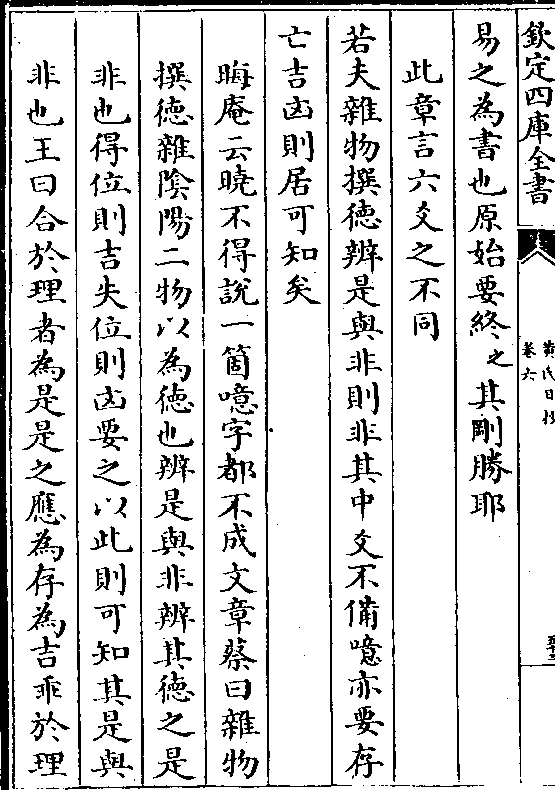 欽定四庫全書
黄氏日抄
卷六
易之為書也原始要終之其剛勝耶
此章言六爻之不同
若夫雜物撰德辨是與非則非其中爻不備噫亦要存
亡吉凶則居可知矣
晦庵云曉不得說一箇噫字都不成文章蔡曰雜物
撰德雜陰陽二物以為德也辨是與非辨其德之是
非也得位則吉失位則凶要之以此則可知其是與
非也王曰合於理者為是是之應為存為吉乖於理